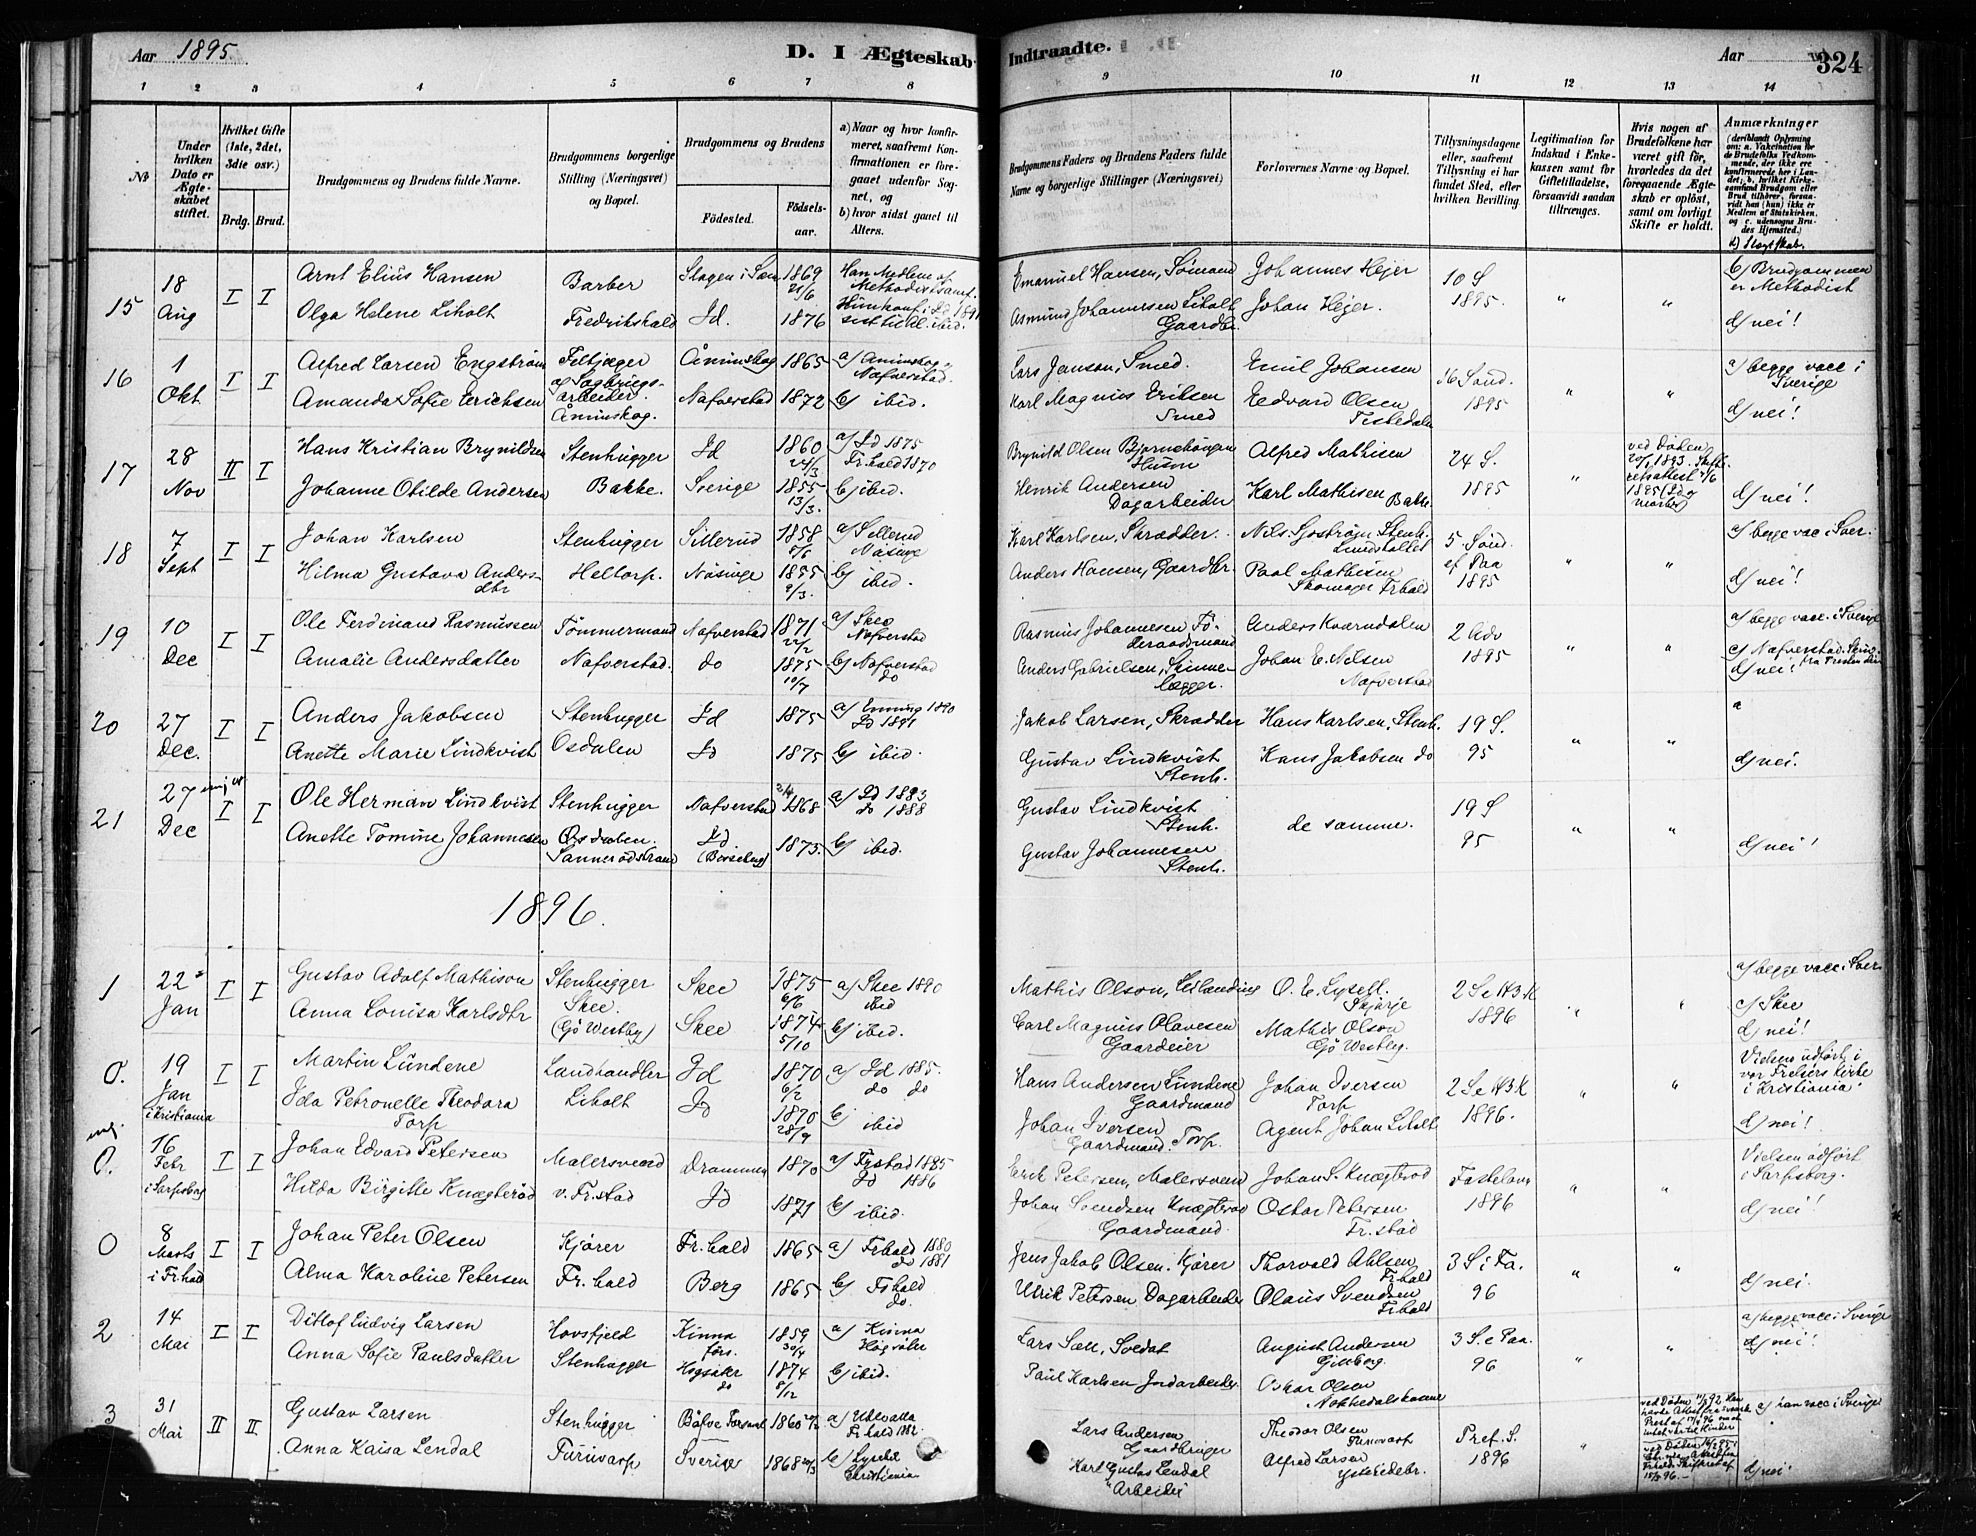 Aar 1895.
D. I Ægteskab-
Indtraadte.
Aar
324
1 2 3 4 5 6 7 8
9 10 11 12 13 14
No
Under hvilken Dato er Ægteskabet stiftet.
Hvilket Gifte (1ste, 2det, 3die osv.)
Brdg. Brud.
Brudgommens og Brudens fulde Navne.
Brudgommens borgerlige Stilling (Næringsvei) og Bopæl.
Brudgommens og Brudens
Födested.
Födsels-aar.
a) Naar og hvor konfirmeret, saafremt Konfirmationen er foregaaet udenfor Sognet, og
b) hvor sidst gaaet til Alters.
Brudgommens Faders og Brudens Faders fulde Navne og borgerlige Stillinger (Næringsvei)
Forlovernes Navne og Bopæl.
Tillysningsdagene eller, saafremt Tillysning ei har fundet Sted, efter hvilken Bevilling.
Legitimation for Indskud i Enkekassen samt for Giftetilladelse, forsaavidt saadan tiltrænges.
Hvis nogen af Brudefolkene har været gift før, hvorledes da det foregaaende Ægteskab er oplöst, samt om lovligt Skifte er holdt.
Anmærkninger
d) Slegtskab.
15
18 Aug
I I
Arnt Elius Hansen
Olga Helene Liholt
Barber
Fredrikshald
Id.
1869 21/6
1876
Emanuel Hansen, Sømand
Asmund Johannesen Liholt
Gaardbr.
Johannes Hejer
Johan Hejer.
10 S
1895.
b) Brudgommen er Methodist
d) nei!
16
1 Okt
I I
Alfred Larsen Engström
Amanda Sofie Erichsen
Åminskog
Nafverstad
1865
1872
a) Aminskog
Nafverstad.
b) ibid.
Lars Janson, Smed.
Karl Magnus Eriksen
Smed
Emil Johansen
Eedvard Olsen
Tistedalen
16 Sönd.
1895
a) begge vacc i Sverige
d) nei!
17
28 Nov
II I
Hans Kristian Brynildsen
Johanne Otilde Andersen
Stenhugger
Bakke.
Id
Sverige
1860
1855 13/3.
a) Id 1875
b) ibid.
Henrik Andersen
Dagarbeider
Alfred Mathisen
Karl Mathisen Bakke
24 S.
1895
d) nei!
18
7 Sept
I I
Johan Karlsen
Hilma Gustava Andersdtr
Stenhugger
Heltorp.
Sillerud
Näsinge
1858
1855 9/3.
a) Sillerud
Näsinge
b) ibid.
Karl Karlsen, Skrædder.
Anders Hansen, Gaardbr.
Nils Sjöström Stenh.
Paal Mathisen
Skomager Frhald
5 Sönd. ef Paa
1895
a) begge vac i Sver.
d) nei!
19
10 Dec
I I
Ole Ferdinand Rasmussen
Amalie Andersdatter
Tömmermand
Nafverstad.
Nafverstad
do
1871 22/2
1875 10/7
a) Skee
Nafverstad
b) Nafverstad
do
Rasmus Johannesen Föderaadsmand
Anders Gabrielsen, Skinnelægger.
Anders Kvarndalen
Johan E. Nilsen
Nafverstad
2 Adv
1895
a) begge vacc. i Sverige
20
27 Dec.
I I
Anders Jakobsen
Anette Marie Lindkvist
Stenhugger
Osdalen
Id
Id
1875
1875
b) ibid.
Jakob Larsen, Skrædder
Gustav Lindkvist
Stenh.
Hans Karlsen, Stenh.
Hans Jakobsen do
19 S.
95
d) nei.
21
27 Dec
I I
Ole Herman Lindkvist
Anette Tomine Johannesen
Stenhugger
Osdalen.
Sannerödstrand
Nafverstad
Id
1868
1873.
a) Id 1883
do 1888
b) ibid.
Gustav Lindkvist
Stenh.
Gustav Johannesen
Stenh.
de samme.
19 S
95
d) nei!
1896.
1
22 Jan
I I
Gustav Adolf Mathison
Anna Lovisa Karlsdtr
Stenhugger
Skee.
(Gö Westby)
Skee
Skee
1875 6/6
1874 5/10
a) Skee 1890
ibid
b) ibid.
Mathis Olson, Leilænding
Carl Magnus Olavesen
Gaardeier
Mathis Olson
Gö Westby.
2 S e H3K
1896
a) begge vacc. i Sver
c) Skee
d) nei!
0.
19 Jan i Kristiania
I I
Martin Lundene
Ida Petronelle Theodora
Torp
Landhandler
Liholt
Id
Id
1870 6/2
1870 28/9
a) Id 1885.
do do
b) ibid
Hans Andersen Lundene
Gaardmand
Johan Iversen
Gaardmand. Torp.
Johan Iversen
Torp
Agent Johan Liholt
2 S e H3K
1896.
Vielsen udført i vor Frelsers Kirke i Kristiania
d) nei!
0.
16 Febr i Sarpsborg
I I
Johan Edvard Petersen
Hilda Birgitte Knagteröd
Malersvend
v. Fr.stad
Drammen
Id
1870
1871
a) Frstad 1885
Id 1886
b) ibid.
Erik Petersen, Malersvend
Johan Svendsen Knagteröd
Gaardmand.
Johan S. Knagteröd
Oskar Petersen
Fr.stad
Fastelavn
1896
Vielsen udført i Sarpsborg.
d) nei!
0
8 Marts i Fr.hald
I I
Johan Peter Olsen
Alma Karoline Petersen
Kjører
Fr.hald
Fr.hald
Berg
1865
1865
a) Frhald 1880
do 1881
b) Frhald
do.
Jens Jakob Olsen. Kjører
Ulrik Petersen Dagarbeider
Thorvald Ahlsen
Fr.hald
Olaus Svendsen
Fr.hald
3 S i Fa.
96
d) nei.
2
14 Mai
I I
Ditlof Ludvig Larsen
Anna Sofie Paulsdatter
Hovsfjeld
Stenhugger
Kinna
Högsäter
1859 30/4
1874 8/12
a) Kinna
Högsäter
b) ibid.
Lars Sall, Soldat
Paul Karlsen Jordarbeider
August Andersen
Oskar Olsen
3 S. e Paa.
96
a) begge vacc i Sverige
d) nei!
3
31 Mai
II II
Gustav Larsen
Anna Kaisa Lendal
Stenhugger
Furuvarp
Sverige
1860
1868
a) Udevalla
Fr.hald 1882.
b) Lysekil
Christiania
Lars Andersen
Gaardbruger
Karl Gustav Lendal
Arbeider
Theodor Olsen
Furuvarp
Alfred Larsen
Ystehedebr.
Tref. S.
1896
a) han vacc i Sverige
d) nei